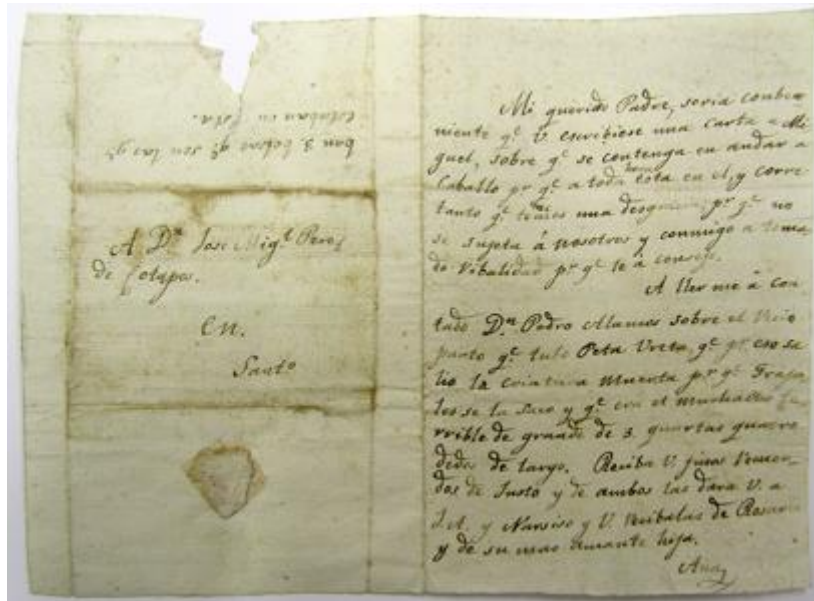 ban 3 botone qe. son las qe
estaban en esta.
A Dn. Jose Migl. Perez
de Cotapos.
En.
Santo
Mi querido Padre, seria conbe
niente qe. V. escribiese una carta a Mi
guel, sobre qe. se contenga en andar a
Caballo pr. qe. a toda hora esta en el, y corre
tanto qe. una desgracia, pr. qe. no
se sujeta á nosotros y conmigo a toma
do Vibalidad pr. qe. le á consejo.
A ller me á con
tado Dn. Pedro Alamos sobre el Recio
parto qe. tubo Peta Ureta, qe. pr. eso sa
lio la criatura muerta pr. qe.
les se la saco y qe. era el muchacho
rrible de grande de 3. quartas quatro
dedos de largo. Reciba V. finos Recuer-
dos de Justo y de ambos las dara V. a
y Narsiso y V. Recibalas de Rosario
y de su mas amante hija.
Ana